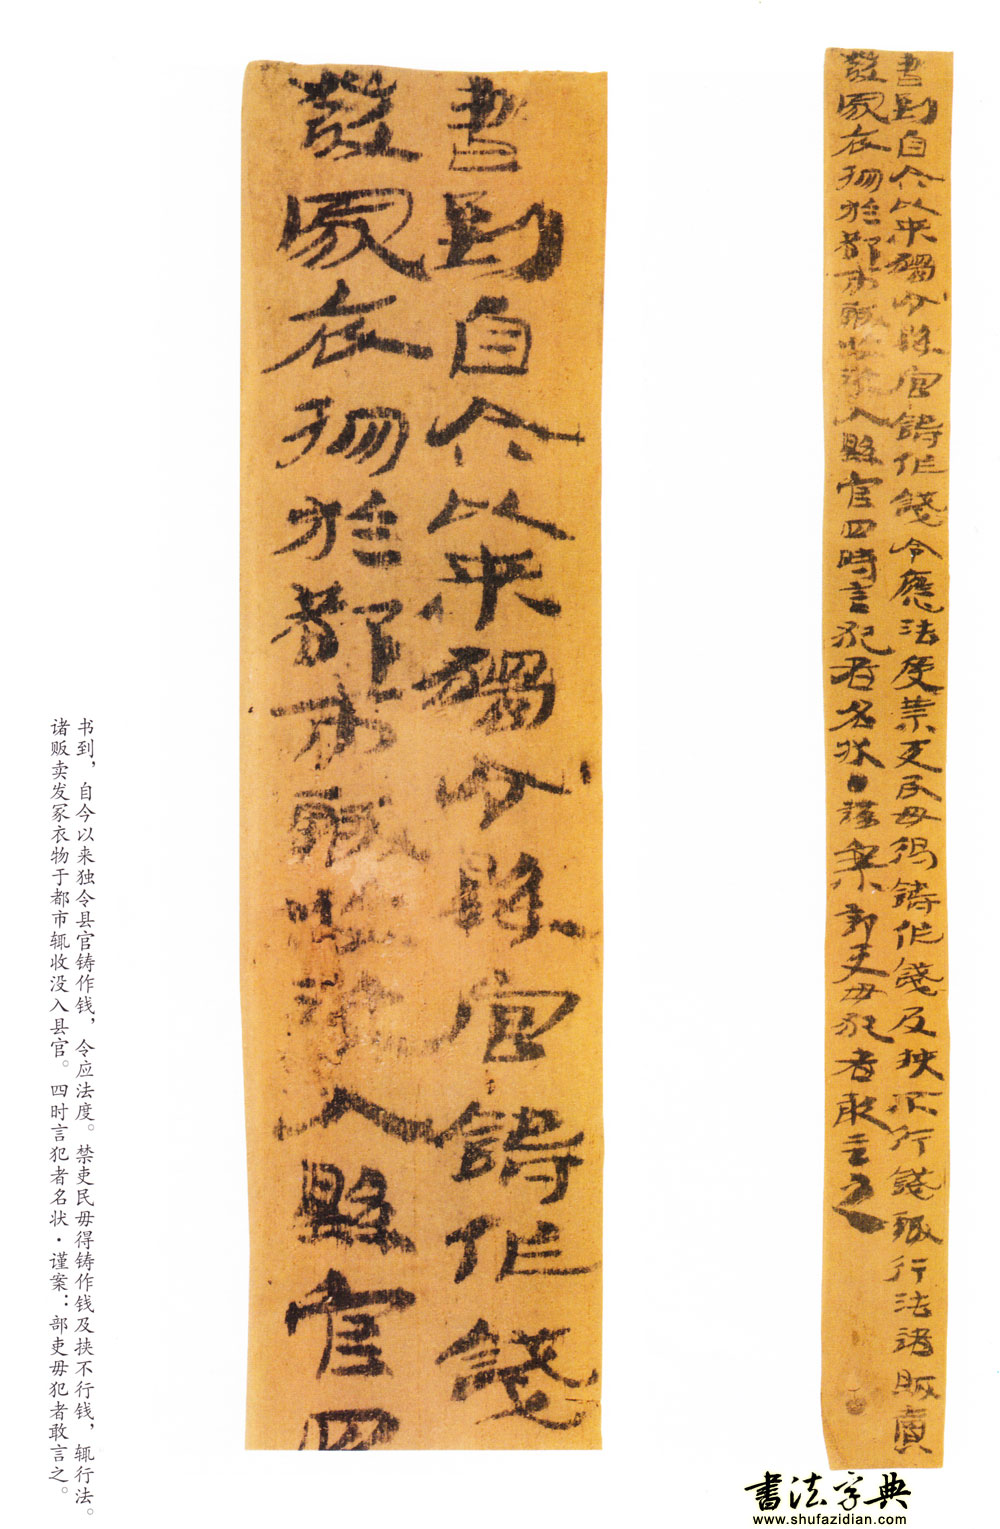 書到自今以來獨令縣官鑄作錢令應法度禁吏民毋得鑄作錢及挾不行錢輒行法諸販賣
發冢衣物於都市輒收沒入縣官四時言犯者名狀●謹案部吏毋犯者敢言之
書到自今以來獨令縣官鑄作錢
發冢衣物於都市輒收沒入縣官四
书到，自今以来独令县官铸作钱，令应法度。禁吏民毋得铸作钱及挟不行钱，辄行法。
诸贩卖发冢衣物于都市辄收没入县官。四时言犯者名状·谨案：部吏毋犯者敢言之。
书法字典
www.shufazidian.com